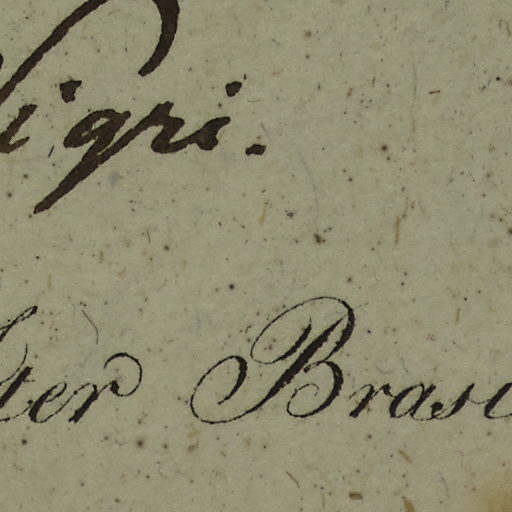 igri.
ter Brasi